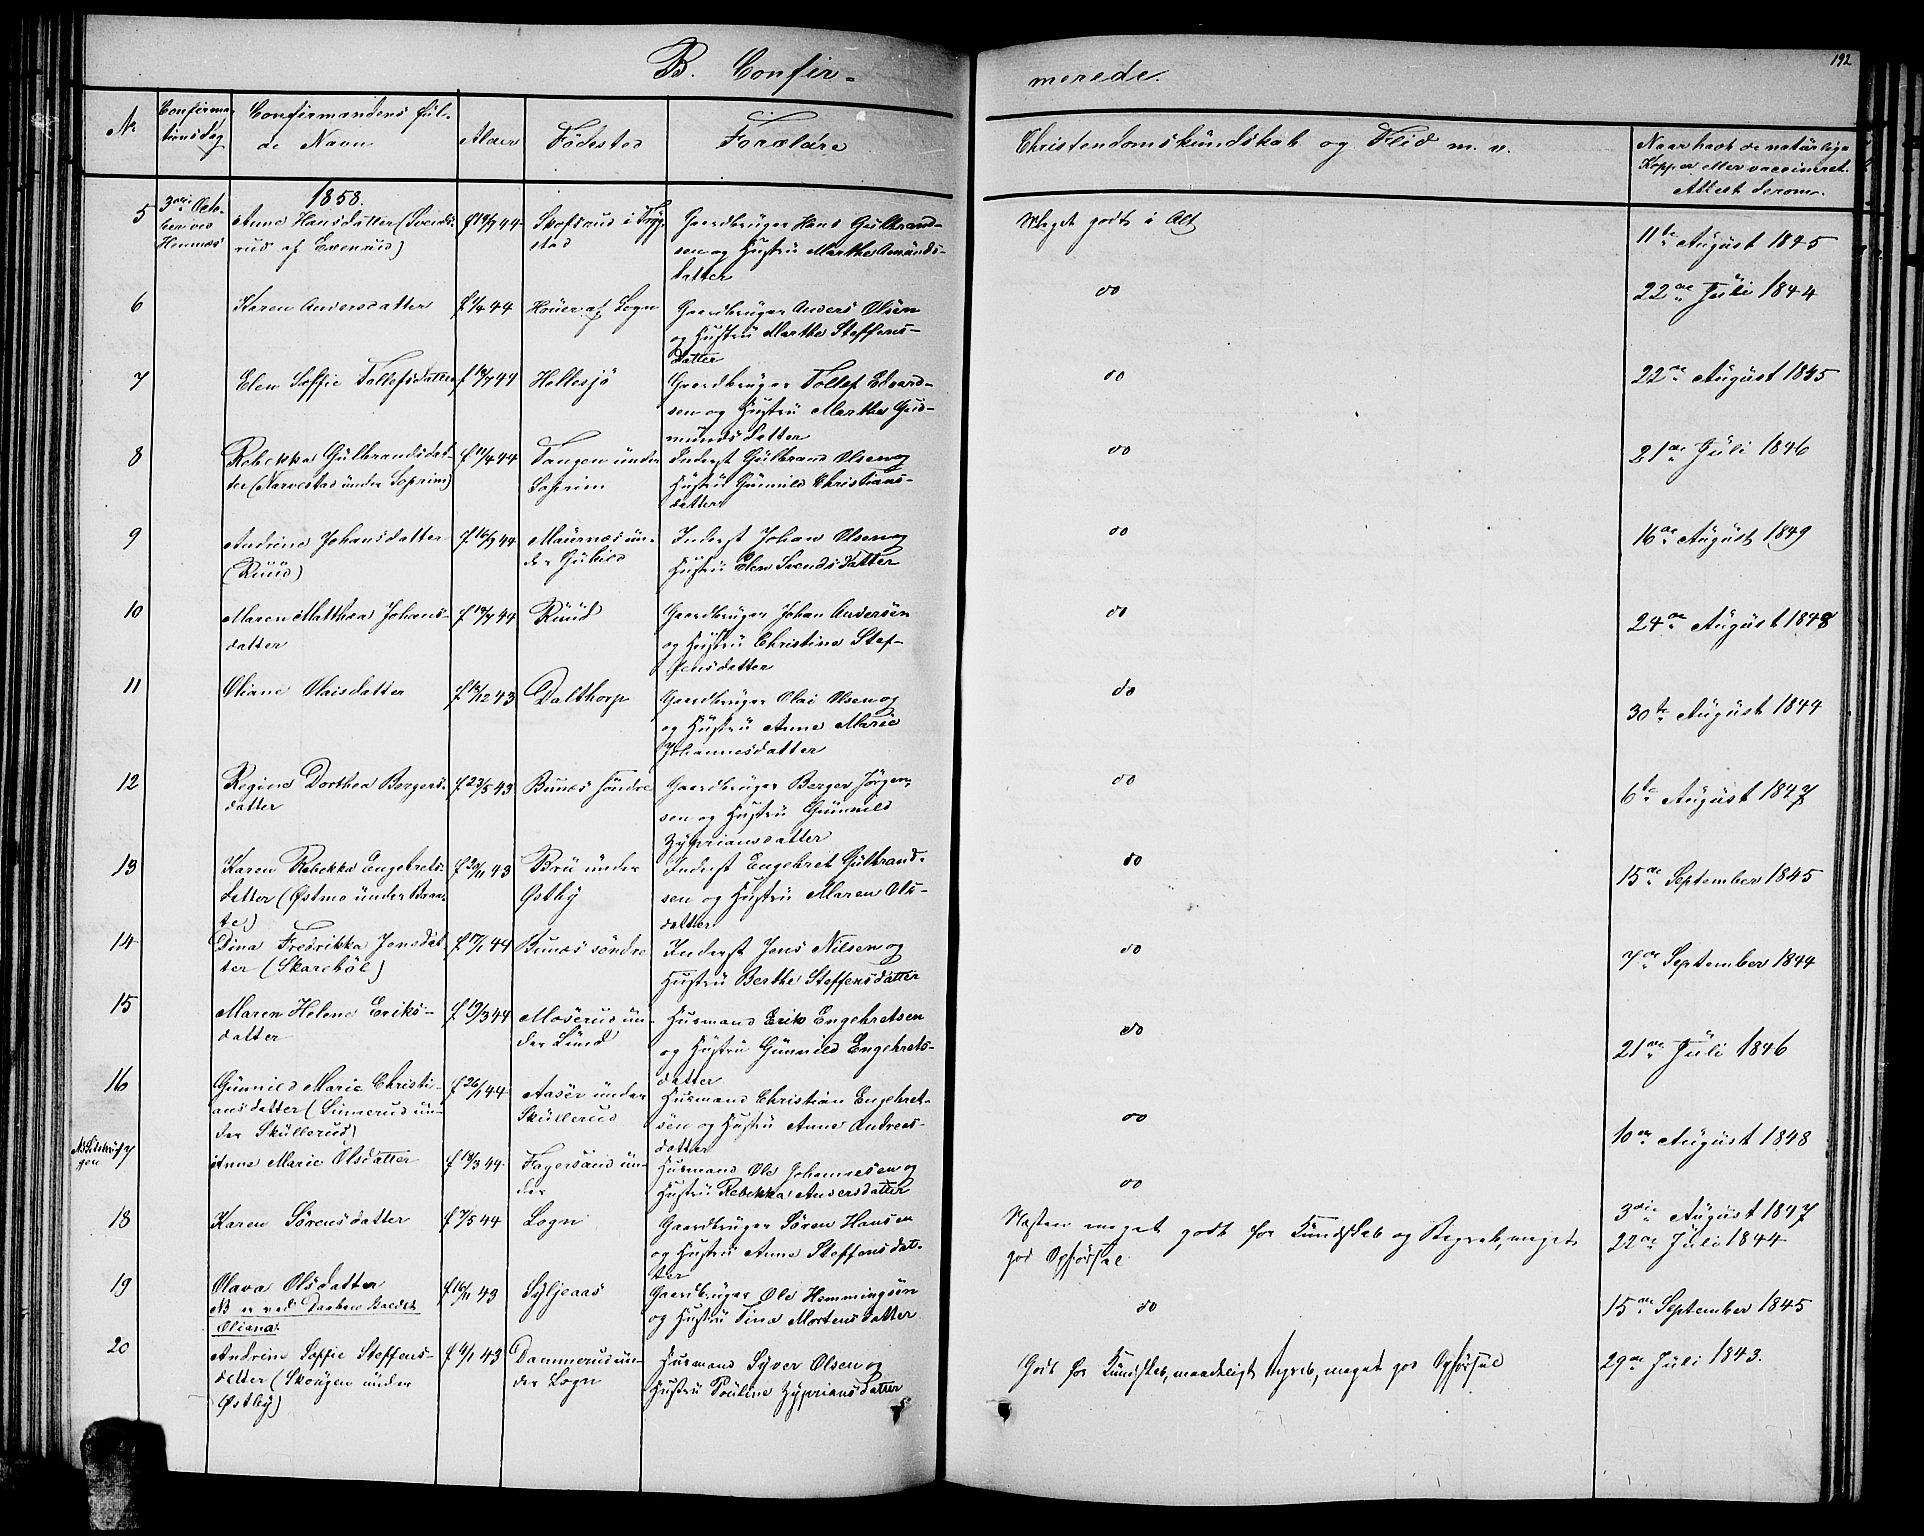 192
B. Confirmerede.
No
Confirmationsdag
Confirmandens fulde Navn
Alder
Fødested
Forældre
Christendomskundskab og Flid m. v.
Naar havt de naturlige Kopper eller vaccineret. Attest derom.
1858.
5
3die Octoben ved Hemnæs
Anne Hansdatter (Svendsrud af Evenrud)
Gaardbruger Hans Gulbrandsen og Hustru Marthe Amundsdatter
Meget godt i Alt
11te August 1845
6
Karen Andersdatter
Houer af Sogn
Gaardbruger Anders Olsen
og Hustru Marthe Steffensdatter
do
22de Juli 1844
7
Elen Soffie Tollefsdatter
Hellesjö
Gaardbruger Tollef Edvardsen og Hustru Marthe Gudmundsdatter
do
22de August 1845
8
Rebekka Gulbrandsdatter (Narvestad under Soprim)
Tangen under Soprim
Inderst Gulbrand Olsen og
Hustru Gunnild Christiansdatter
do
21de Juli 1846
9
Andrine Johansdatter
(Ruud)
f 16/9 44
Maurnæs under
Inderst Johan Olsen og
Hustru Elen Svendsdatter
do
16de August 1849
10
Maren Matthea Johansdatter
Ruud
Gaardbruger Johan Andersen
og Hustru Christine Steffensdatter
do
24de August 1848
11
Oliane Olaisdatter
f 18/12 43
Dalthorp
Gaardbruger Olai Olsen og
og Hustru Anne Marie
Johannesdatter
do
30te August 1844
12
Regine Dorthea Bergersdatter
f 23/5 43
Bunæs söndre
Gaardbruger Berger Jörgensen og Hustru Gunnild
Zypriansdatter
do
6te August 1847
13
Karen Rebekka Engebretsdatter (Østmo under Braate)
f 20/11 43
Bru under
Østby
Inderst Engebret Gulbrandsen og Hustru Maren Olsdatter
do
15de September 1845
14
Dina Fredrikka Jensdatter (Skarehol)
f 17/1 44
Bunæs söndre
Inderst Jens Nilsen og
Hustru Berthe Steffensdatter
do
7de September 1844
15
Maren Helene Eriksdatter
f 19/3 44
Moserud under Lund
Husmand Erik Engebretsen
og Hustru Gunnild Engebretsdatter
do
21de Juli 1846
16
Gunnild Marie Christiansdatter (Linnerud under Skullerud)
f 26/1 44
Aaser under
Skullerud
Husmand Christian Engebretsen og Hustru Anne Andreasdatter
do
10de August 1848
17
Anne Marie Olsdatter
f 19/3 44
Fagersand under
Husmand Ole Johannesen og
Hustru Rebekka Andersdatter
do
3die August 1847
18
Karen Sörensdatter
f 7/5 44
Sogn
Gaardbruger Sören Hansen
og Hustru Anne Steffensdatter
Næsten meget godt for Kundskab og Begreb, meget
god Opförsel.
22de Juli 1844
19
Olava Olsdatter
NB er ved Daaben kaldet
Oliana.
f 16/11 43
Syljeaas
Gaardbruger Ole Hemmingsön
og Hustru Tina Mortensdatter
do
15de September 1845
20
Andrine Soffie Steffensdatter (Skougen under
Østby)
Dammerud under Sogn
Husmand Syver Olsen og
Hustru Pouline Zypriansdatter
Godt for Kundskab, maadeligt Begreb, meget god Opförsel
29de Juli 1843.